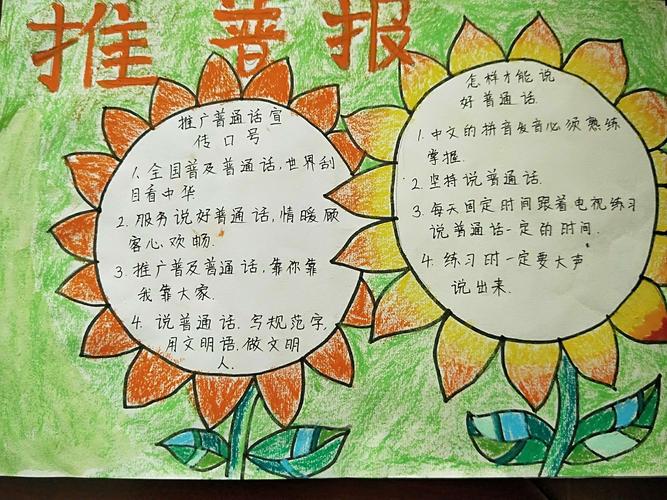 推普报
推广普通话宣
传口号
1. 全国普及普通话,世界刮
目看中华
2. 服务说好普通话,情暖顾
客心欢畅.
3. 推广普及普通话,靠你靠
我靠大家.
4. 说普通话.写规范字,
用文明语.做文明
人.
怎样才能说
好普通话.
1. 中文的拼音发音必须熟练
掌握.
2. 坚持说普通话.
3. 每天固定时间跟着电视练习
说普通话一定的时间.
4. 练习时一定要大声
说出来.